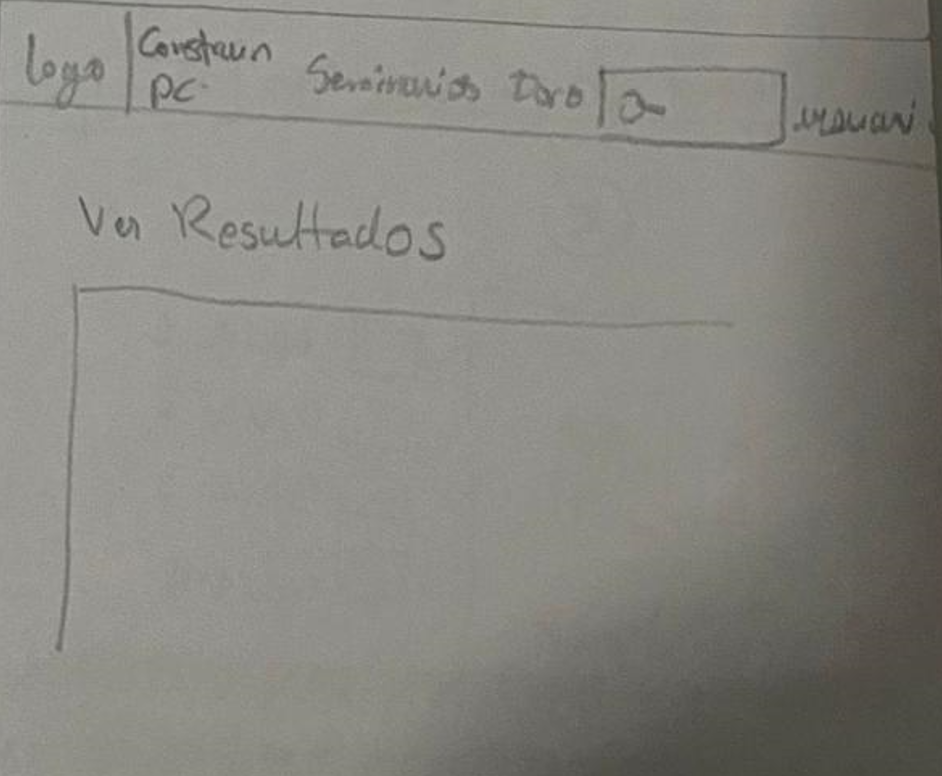 logo Construir PC Seminarios Foro usuari
Ver Resultados